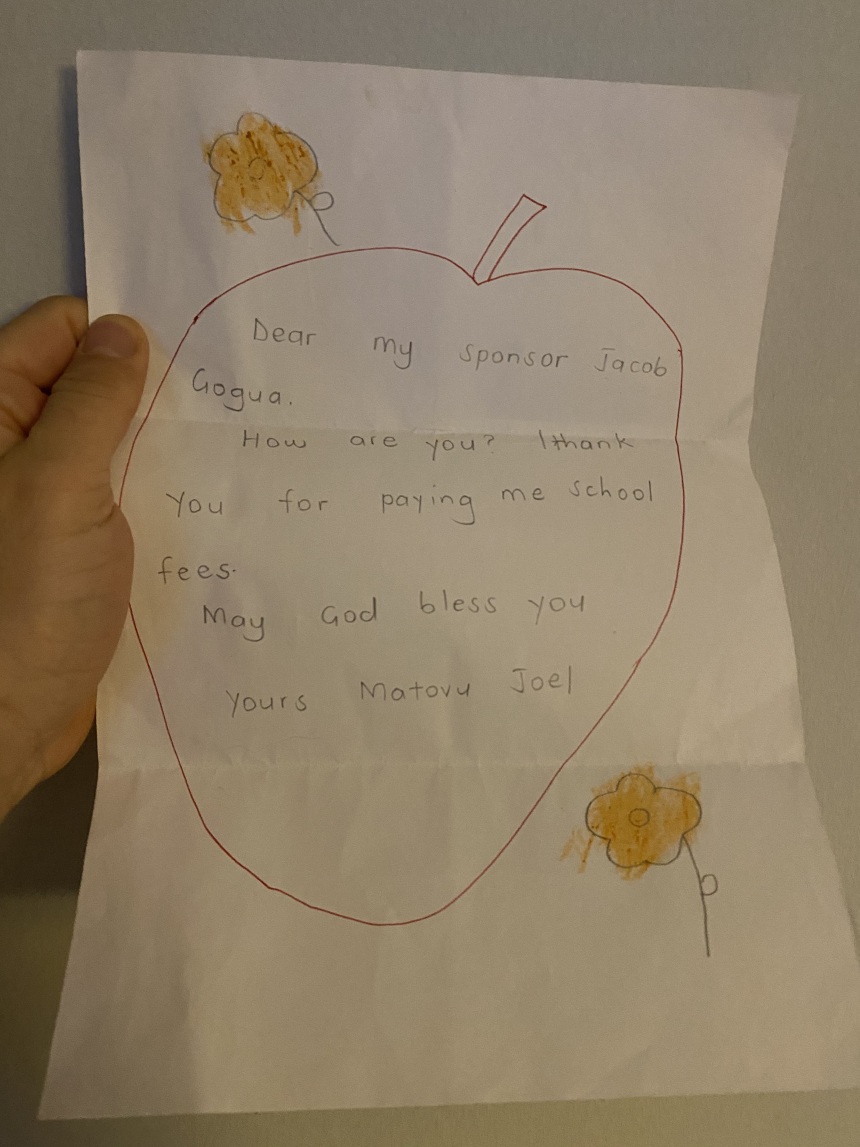 Dear my sponsor Jacob
Gogua.
How are you? I thank
you for paying me school
fees.
May God bless you
yours Matovu Joel